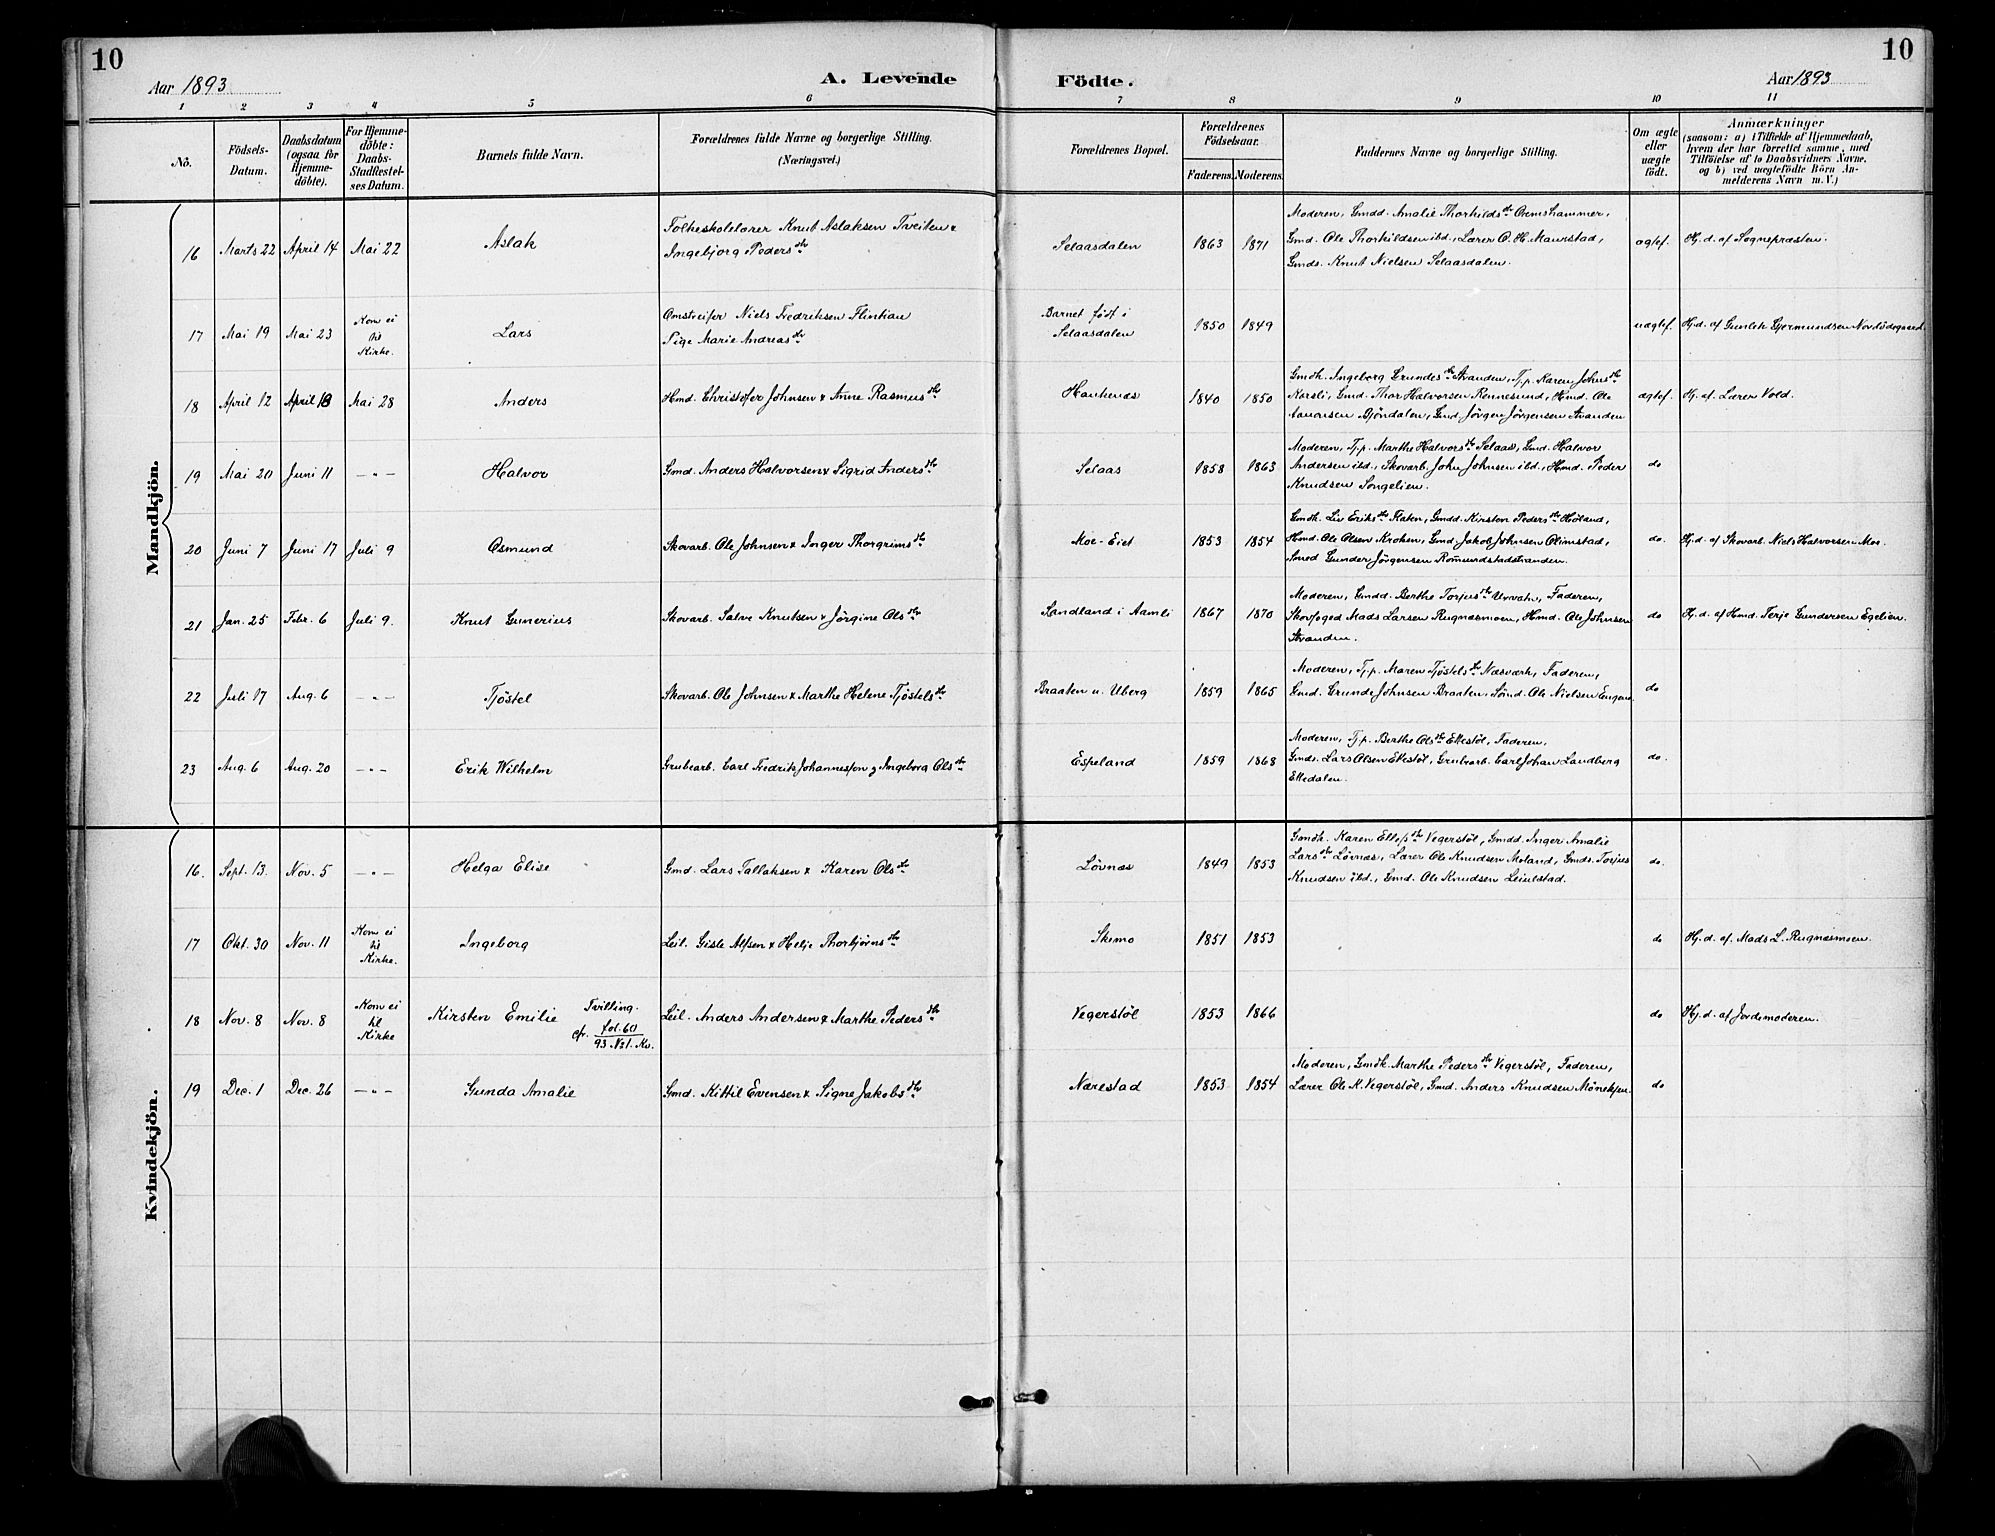 10
Aar 1893
A. Levende Födte.
Aar 1893
10
1 2 3 4 5 6 7 8 9 10 11
Nô.
Födsels-Datum.
Daabsdatum (ogsaa for Hjemmedöbte).
For Hjemmedöbte: Daabs-Stadfæstelses Datum.
Barnets fulde Navn.
Forældrenes fulde Navne og borgerlige Stilling. (Næringsvei.)
Forældrenes Bopæl.
Forældrenes Födselsaar.
Faderens. Moderens.
Faddernes Navne og borgerlige Stilling.
Om ægte eller uægte födt.
Anmærkninger
(saasom: a) i Tilfælde af Hjemmedaab,
hvem der har forrettet samme, med
Tilföielse af to Daabsvidners Navne,
og b) ved uægtefödte Börn An-
melderens Navn m. V.)
Mandkjön.
16 Marts 22 April 14 Mai 22 Aslak
Folkeskolelærer Knut Aslaksen Tveiten &
Ingebjorg Pedersdtr
Selaasdalen 1863 1871
Moderen, Gmdd. Amalie Thorkildsdtr Ormshammer,
Gmd. Ole Thorkildsen ibd., Lærer O. H. Maurstad,
Gmds. Knut Nielsen Selaasdalen.
ægtef. Hj.d. af Sognepræsten.
17 Mai 19 Mai 23 Kom ei til Kirke. Lars
Omstreifer Niels Fredriksen Flintian
Pige Marie Andreasdtr
Barnet født i Selaasdalen 1850 1849
uægtef. Hj.d. af Gunlek Gjermundsen
18 April 12 April 18 Mai 28 Anders
Hmd. Christofer Johnsen & Anne Rasmusdtr
1840 1850
Gmdk. Ingeborg Grundesdtr Stranden, Tj.p. Karen Johnsdtr
Karsli, Gmd. Thor Halvorsen Rennesund, Hmd. Ole
Aanonsen Bjöndalen, Gmd. Jörgen Jörgensen Stranden
ægtef. Hj. af Lærer Vold.
19 Mai 20 Juni 11 -"- Halvor
Gmd. Anders Halvorsen & Sigrid Andersdtr
Selaas 1858 1863
Moderen, Tj.p. Marthe Halvorsdtr Selaas, Gmd. Halvor
Andersen ibd., Skovarb. John Johnsen ibd., Hmd. Peder
Knudsen Songelien.
do
20 Juni 7 Juni 17 Juli 9 Osmund
Skovarb. Ole Johnsen & Inger Thorgrimsdtr
Moe-Eiet 1853 1854
Gmdk. Liv Eriksdtr Flaten, Gmdd. Kirsten Pedersdtr Höland,
Hmd. Ole Olsen Kroken, Gmd. Jakob Johnsen Olimstad,
Smed Gunder Jörgensen Romundstadstranden.
do. Hj.d. af Skovarb. Niels Halvorsen Moe.
21 Jan. 25 Febr. 6 Juli 9. Knut Gunerius
Skovarb. Salve Knutsen & Jörgine Olsdtr
Sandland i Aamli 1867 1870
Moderen, Gmdd. Berthe Torjusdtr Urvatn, Faderen,
Skovfoged Mads Larsen Rugnæsmoen, Hmd. Ole Johnsen
Stranden.
do Hj.d. af Hmd. Terje Gundersen Egelien.
22 Juli 17 Aug. 6 -"- Tjöstel
Skovarb. Ole Johnsen & Marthe Helene Tjöstelsdtr
Braaten u. Uberg 1859 1865
Moderen, Tj.p. Maren Tjöstelsdtr Næsværk, Faderen,
Gmd. Grunde Johnsen Braaten, Ole Nielsen
do
23 Aug. 6 Aug. 20 -"- Erik Wilhelm
Grubearb. Carl Fredrik Johannesson & Ingeborg Olsdtr
Espeland 1859 1868
Moderen, Tj.p. Berthe Olsdtr Ettestöl, Faderen,
Gmds. Lars Olsen Ettestöl, Grubarb. Carl Johan Landberg
Ettedalen.
do.
Kvindekjön.
16. Sept. 13. Nov. 5 -"- Helga Elise
Gmd. Lars Tallaksen & Karen Olsdtr
Lövnæs 1849 1853
Gmdk. Karen Ellefsdtr Vegerstöl, Gmdd. Inger Amalie
Larsdtr Lövnæs, Lærer Ole Knudsen Moland, Gmds. Torjus
Knudsen ibd., Gmd. Ole Knudsen Leiulstad.
do.
17 Okt. 30 Nov. 11 Kom ei til Kirke. Ingeborg
Leil. Gisle Alfsen & Helje Thorbjörnsdtr
Skimo 1851 1853
do Hj.d. af Mads L. Rugnæsmoen.
18 Nov. 8 Nov. 8 Kom ei til Kirke Kirsten Emilie Tvilling. cfr. fol. 60 93 No 1. Kv.
Leil. Anders Andersen & Marthe Pedersdtr
Vegerstöl 1853 1866
do Hj.d. af Jordemoderen.
19 Dec. 1 Dec. 26 -"- Gunda Amalie
Gmd. Kittil Evensen & Signe Jakobsdtr
Nærestad 1853 1854
Moderen, Gmdk. Marthe Pedersdtr Vegerstöl, Faderen,
Lærer Ole K. Vegerstöl, Gmd. Anders Knudsen
do